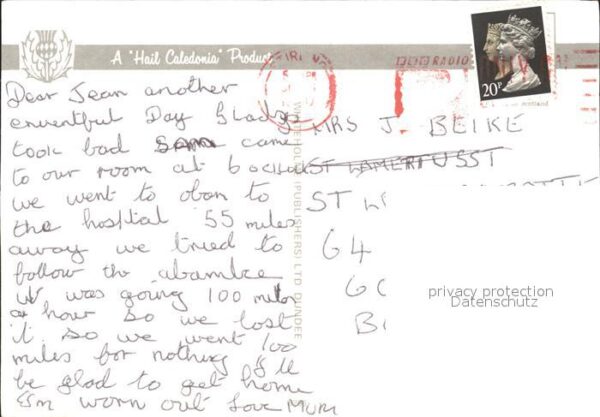 A "Hail Caledonia" Product
RADIO
20P
Dear Jean another
enventful Day Gladys
took bad came
to our room at 6 oclock
we went to oban to
the hospital 55 miles
away we tried to
follow the abamlce
it was going 100 miles
a hour so we lost
it so we went 100
miles for nothing I'll
be glad to get home
I'm worn out Love Mum
WHITEHOLME (PUBLISHERS) LTD. DUNDEE
MRS J. BEIKE
ST
ST
64
privacy protection
Datenschutz